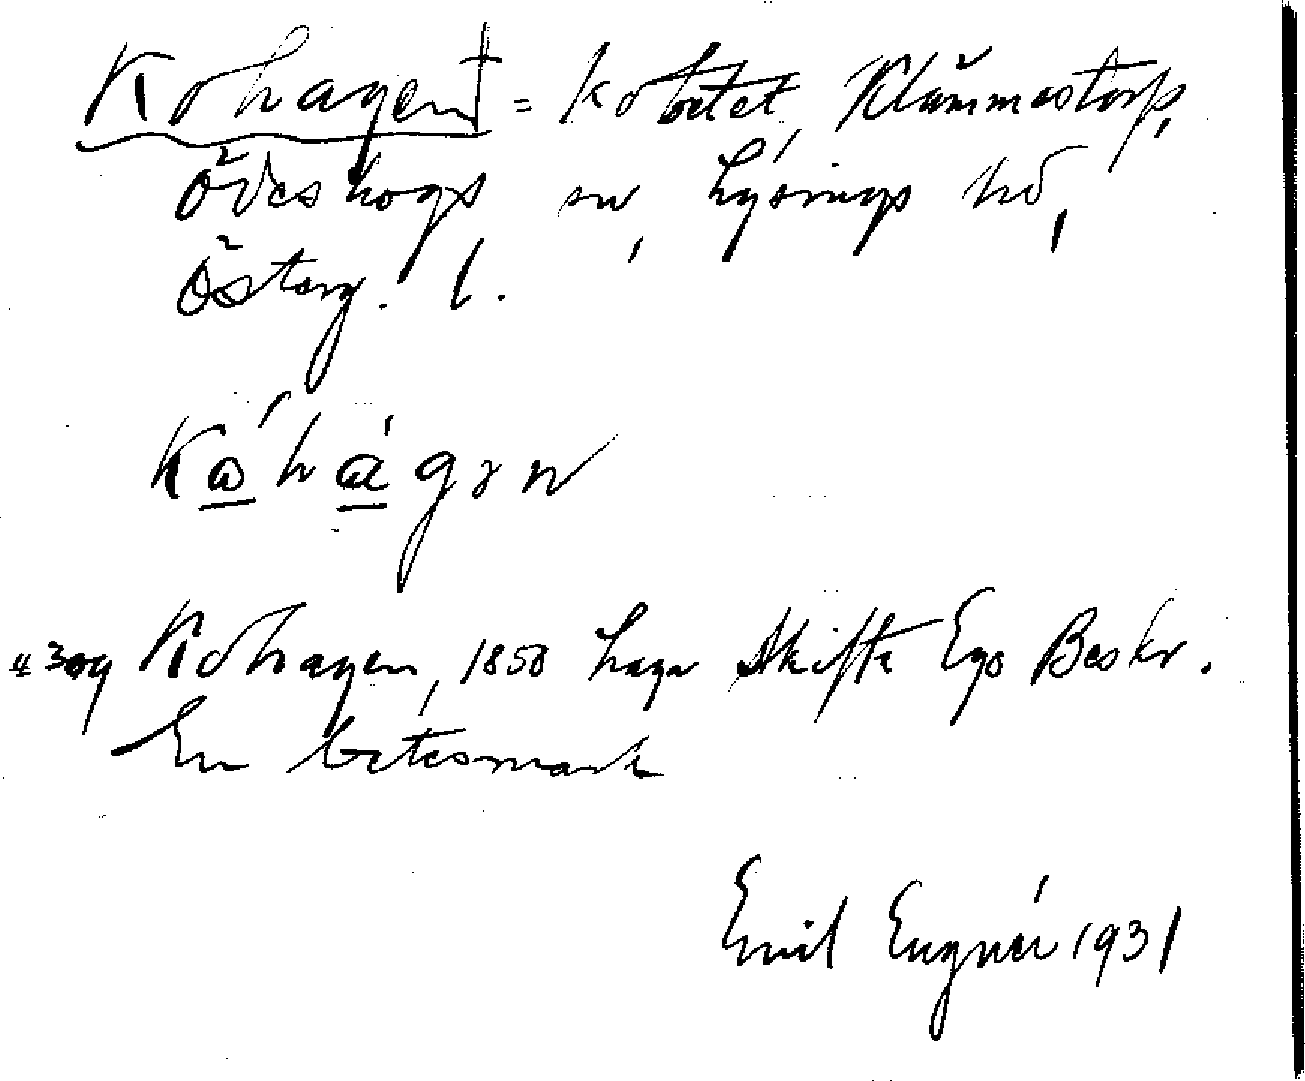 Kohagen† = kobetet, Klämmestorp,
Ödeshogs sn, Lysings hd,
Österg. l.
Kohagen, 1850 laga skifte Ego Beskr.
En betesmark
Emil Eugnér 1931